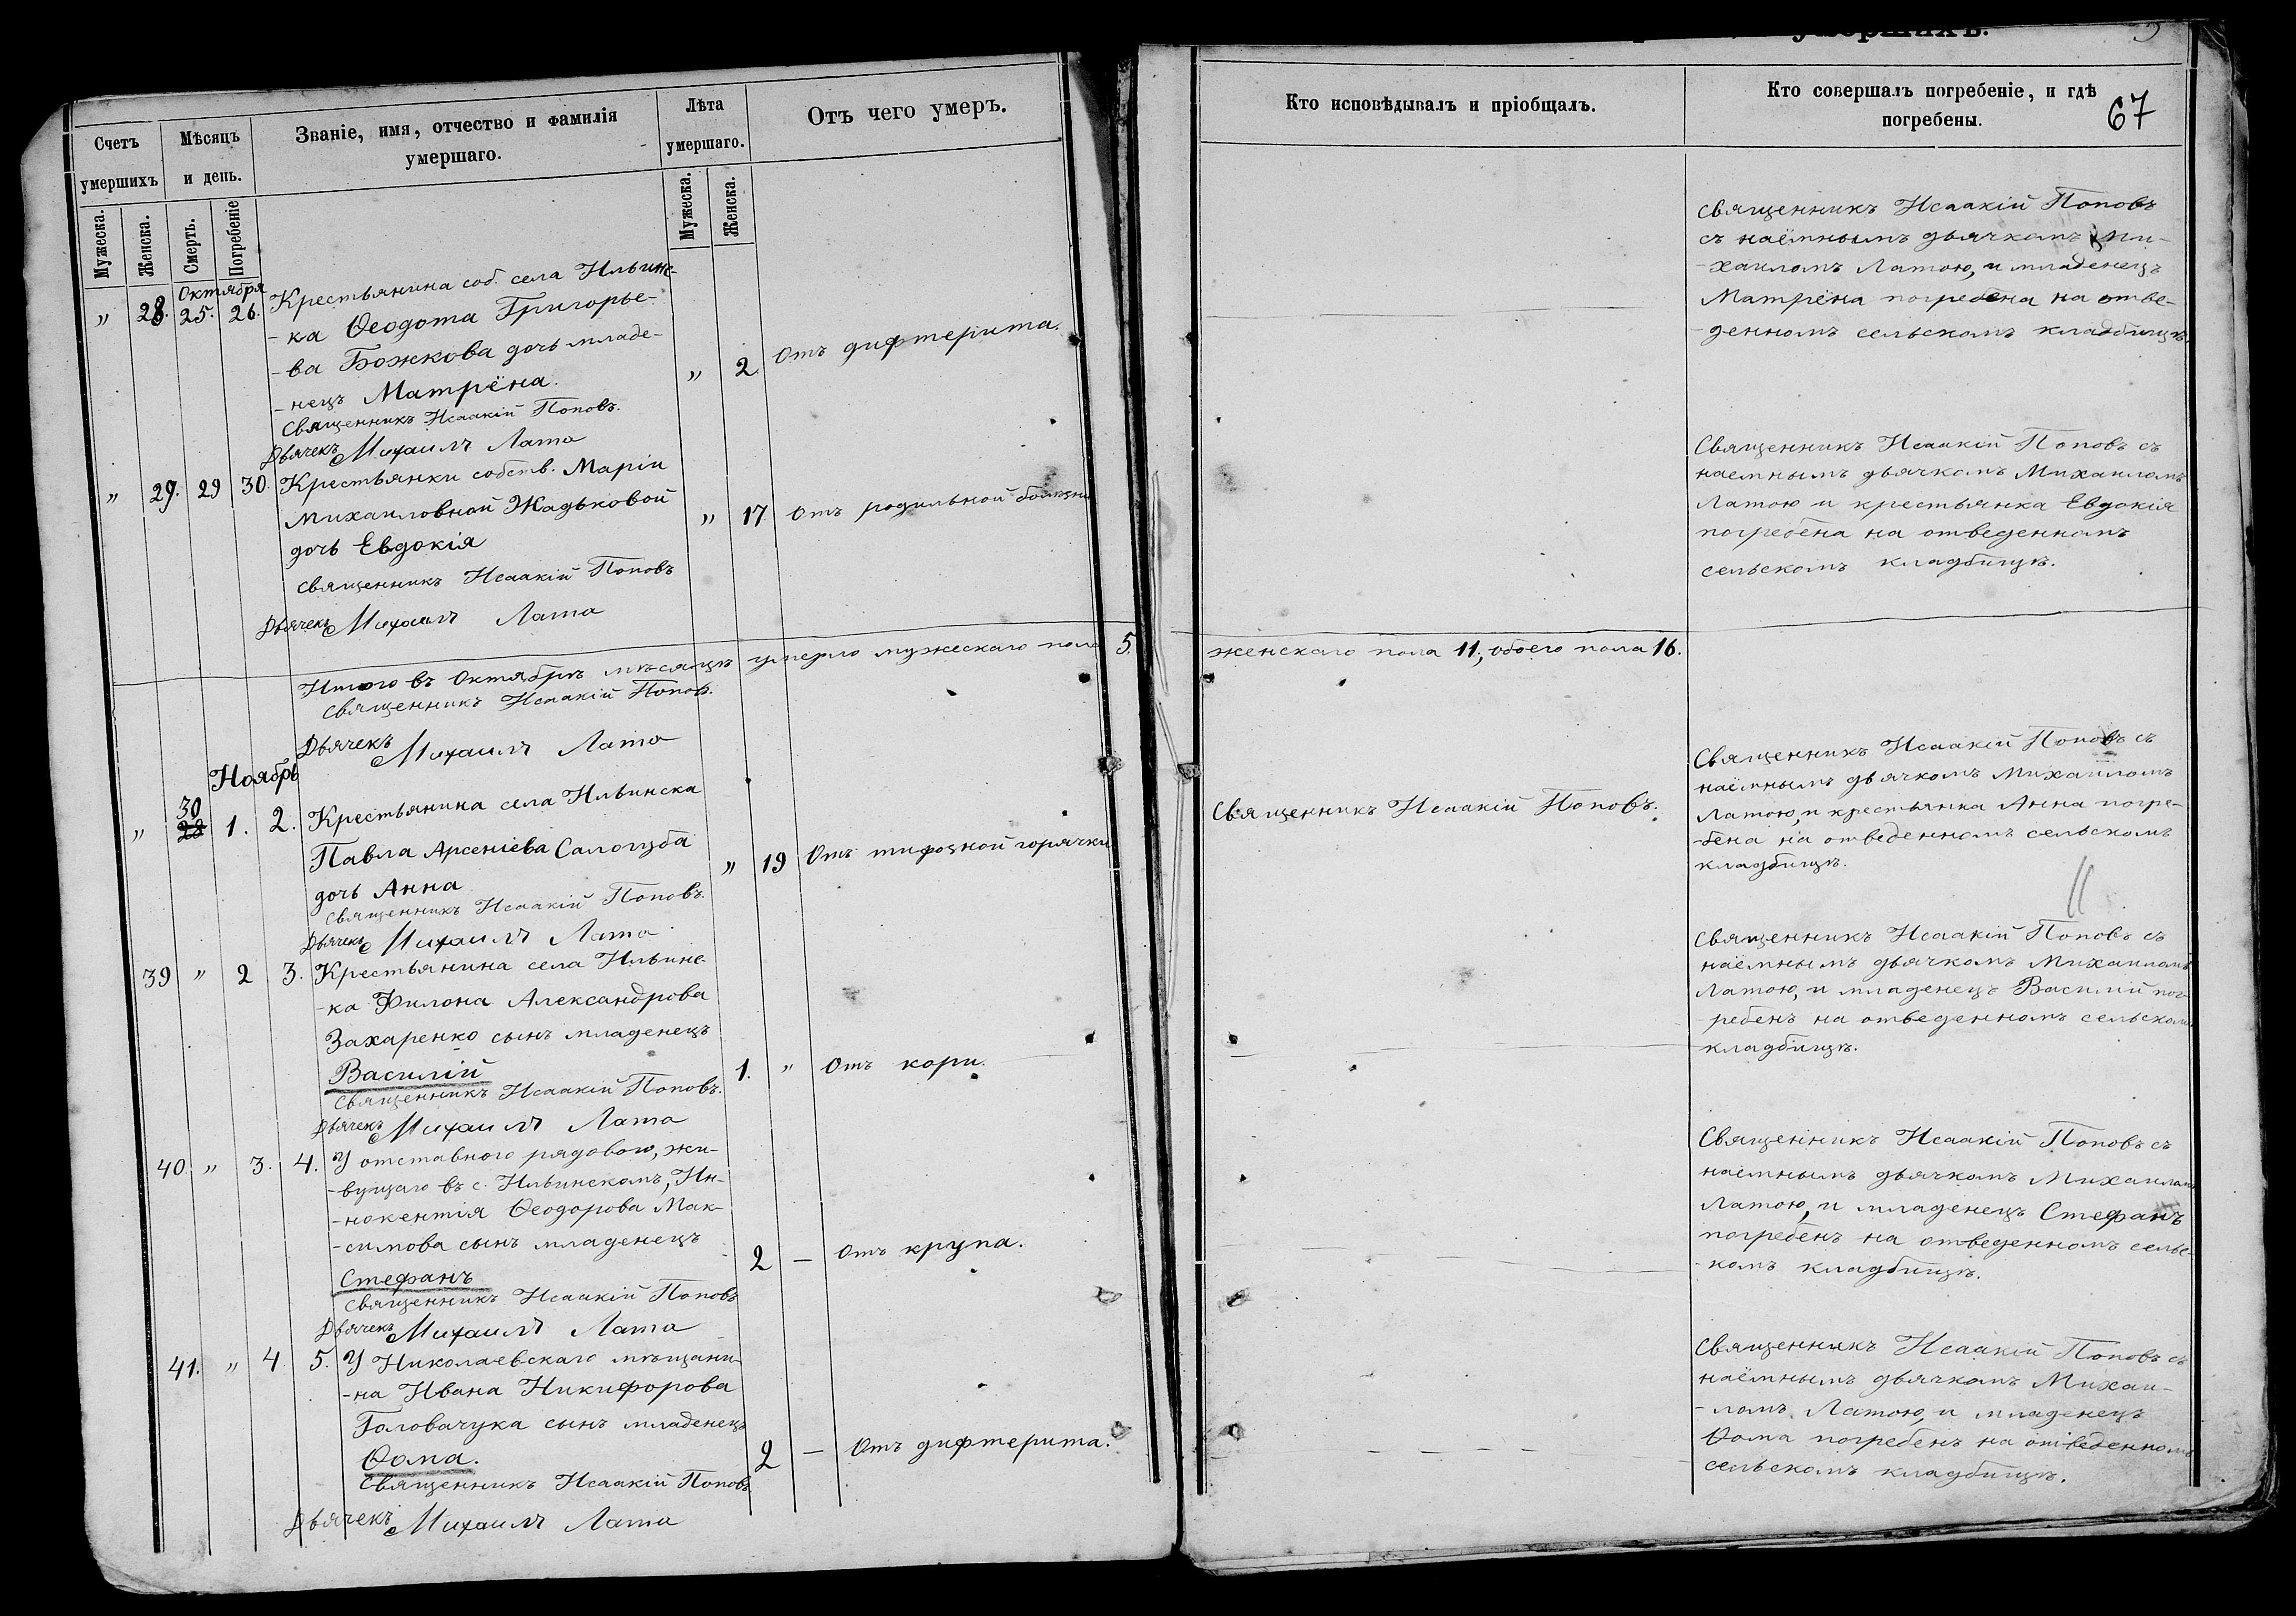 умершихъ.
Счетъ умершихъ
Мѣсяцъ и день.
Званіе, имя, отчество и фамилія умершаго.
Лѣта умершаго.
Отъ чего умеръ.
Мужеска.
Женска.
Смерть.
Погребеніе
Мужеска.
Женска.
Кто исповѣдывалъ и пріобщалъ.
Кто совершалъ погребеніе, и гдѣ погребены.
67
Октября
„ 28. 25. 26. Крестьянина соб. села Ильинс-
-ка Ѳеодота Григорье-
-ва Божкова дочь младе-
-нецъ Матрёна. „ 2. Отъ дифтерита.
Священникъ Исаакій Поповъ.
Дьячекъ Михаилъ Лата
Священникъ Исаакій Поповъ
съ наёмнымъ дьячкомъ Ми-
-хаиломъ Латою, и младенецъ
Матрёна погребена на отве-
-денномъ сельскомъ кладбищѣ.
„ 29. 29 30. Крестьянки собств. Маріи
Михаиловной Жадьковой „ 17. Отъ родильной болѣзни
дочь Евдокія
Священникъ Исаакій Поповъ
Дьячекъ Михаилъ Лата
Священникъ Исаакій Поповъ съ
наемнымъ дьячкомъ Михаиломъ
Латою и крестьянка Евдокія
погребена на отведенномъ
сельскомъ кладбищѣ.
Итого въ Октябрѣ мѣсяцѣ умерло мужескаго пола 5. женскаго пола 11, обоего пола 16.
Священникъ Исаакій Поповъ.
Дьячекъ Михаилъ Лата
Ноябрь
30
„ 28 1. 2. Крестьянина села Ильинска
Павла Арсеніева Салогуба „ 19 Отъ тифозной горячки
дочь Анна
Священникъ Исаакій Поповъ.
Дьячекъ Михаилъ Лата
Священникъ Исаакій Поповъ.
Священникъ Исаакій Поповъ съ
наёмнымъ дьячкомъ Михаиломъ
Латою, и крестьянка Анна погре-
-бена на отведенномъ сельскомъ
кладбищѣ.
39 „ 2 3. Крестьянина села Ильинс-
-ка Филона Александрова
Захаренко сынъ младенецъ
Василій 1. „ Отъ кори.
Священникъ Исаакій Поповъ.
Дьячекъ Михаилъ Лата
Священникъ Исаакій Поповъ съ
наёмнымъ дьячкомъ Михаиломъ
Латою, и младенецъ Василій пог-
-ребенъ на отведенномъ сельскомъ
кладбищѣ.
40. „ 3. 4. У отставного рядового, жи-
-вущаго въ с. Ильинскомъ, Ин-
-нокентія Ѳеодорова Мак-
-симова сынъ младенецъ 2 — Отъ крупа.
Стефанъ
Священникъ Исаакій Поповъ
Дьячекъ Михаилъ Лата
Священникъ Исаакій Поповъ съ
наёмнымъ дьячкомъ Михаиломъ
Латою, и младенецъ Стефанъ
погребенъ на отведенномъ сельс-
-комъ кладбищѣ.
41. „ 4. 5. У Николаевскаго мѣщани-
-на Ивана Никифорова
Головачука сынъ младенецъ
Ѳома. 2 — Отъ дифтерита.
Священникъ Исаакій Поповъ.
Дьячекъ Михаилъ Лата
Священникъ Исаакій Поповъ съ
наёмнымъ дьячкомъ Михаи-
-ломъ Латою, и младенецъ
Ѳома погребенъ на отведенномъ
сельскомъ кладбищѣ.